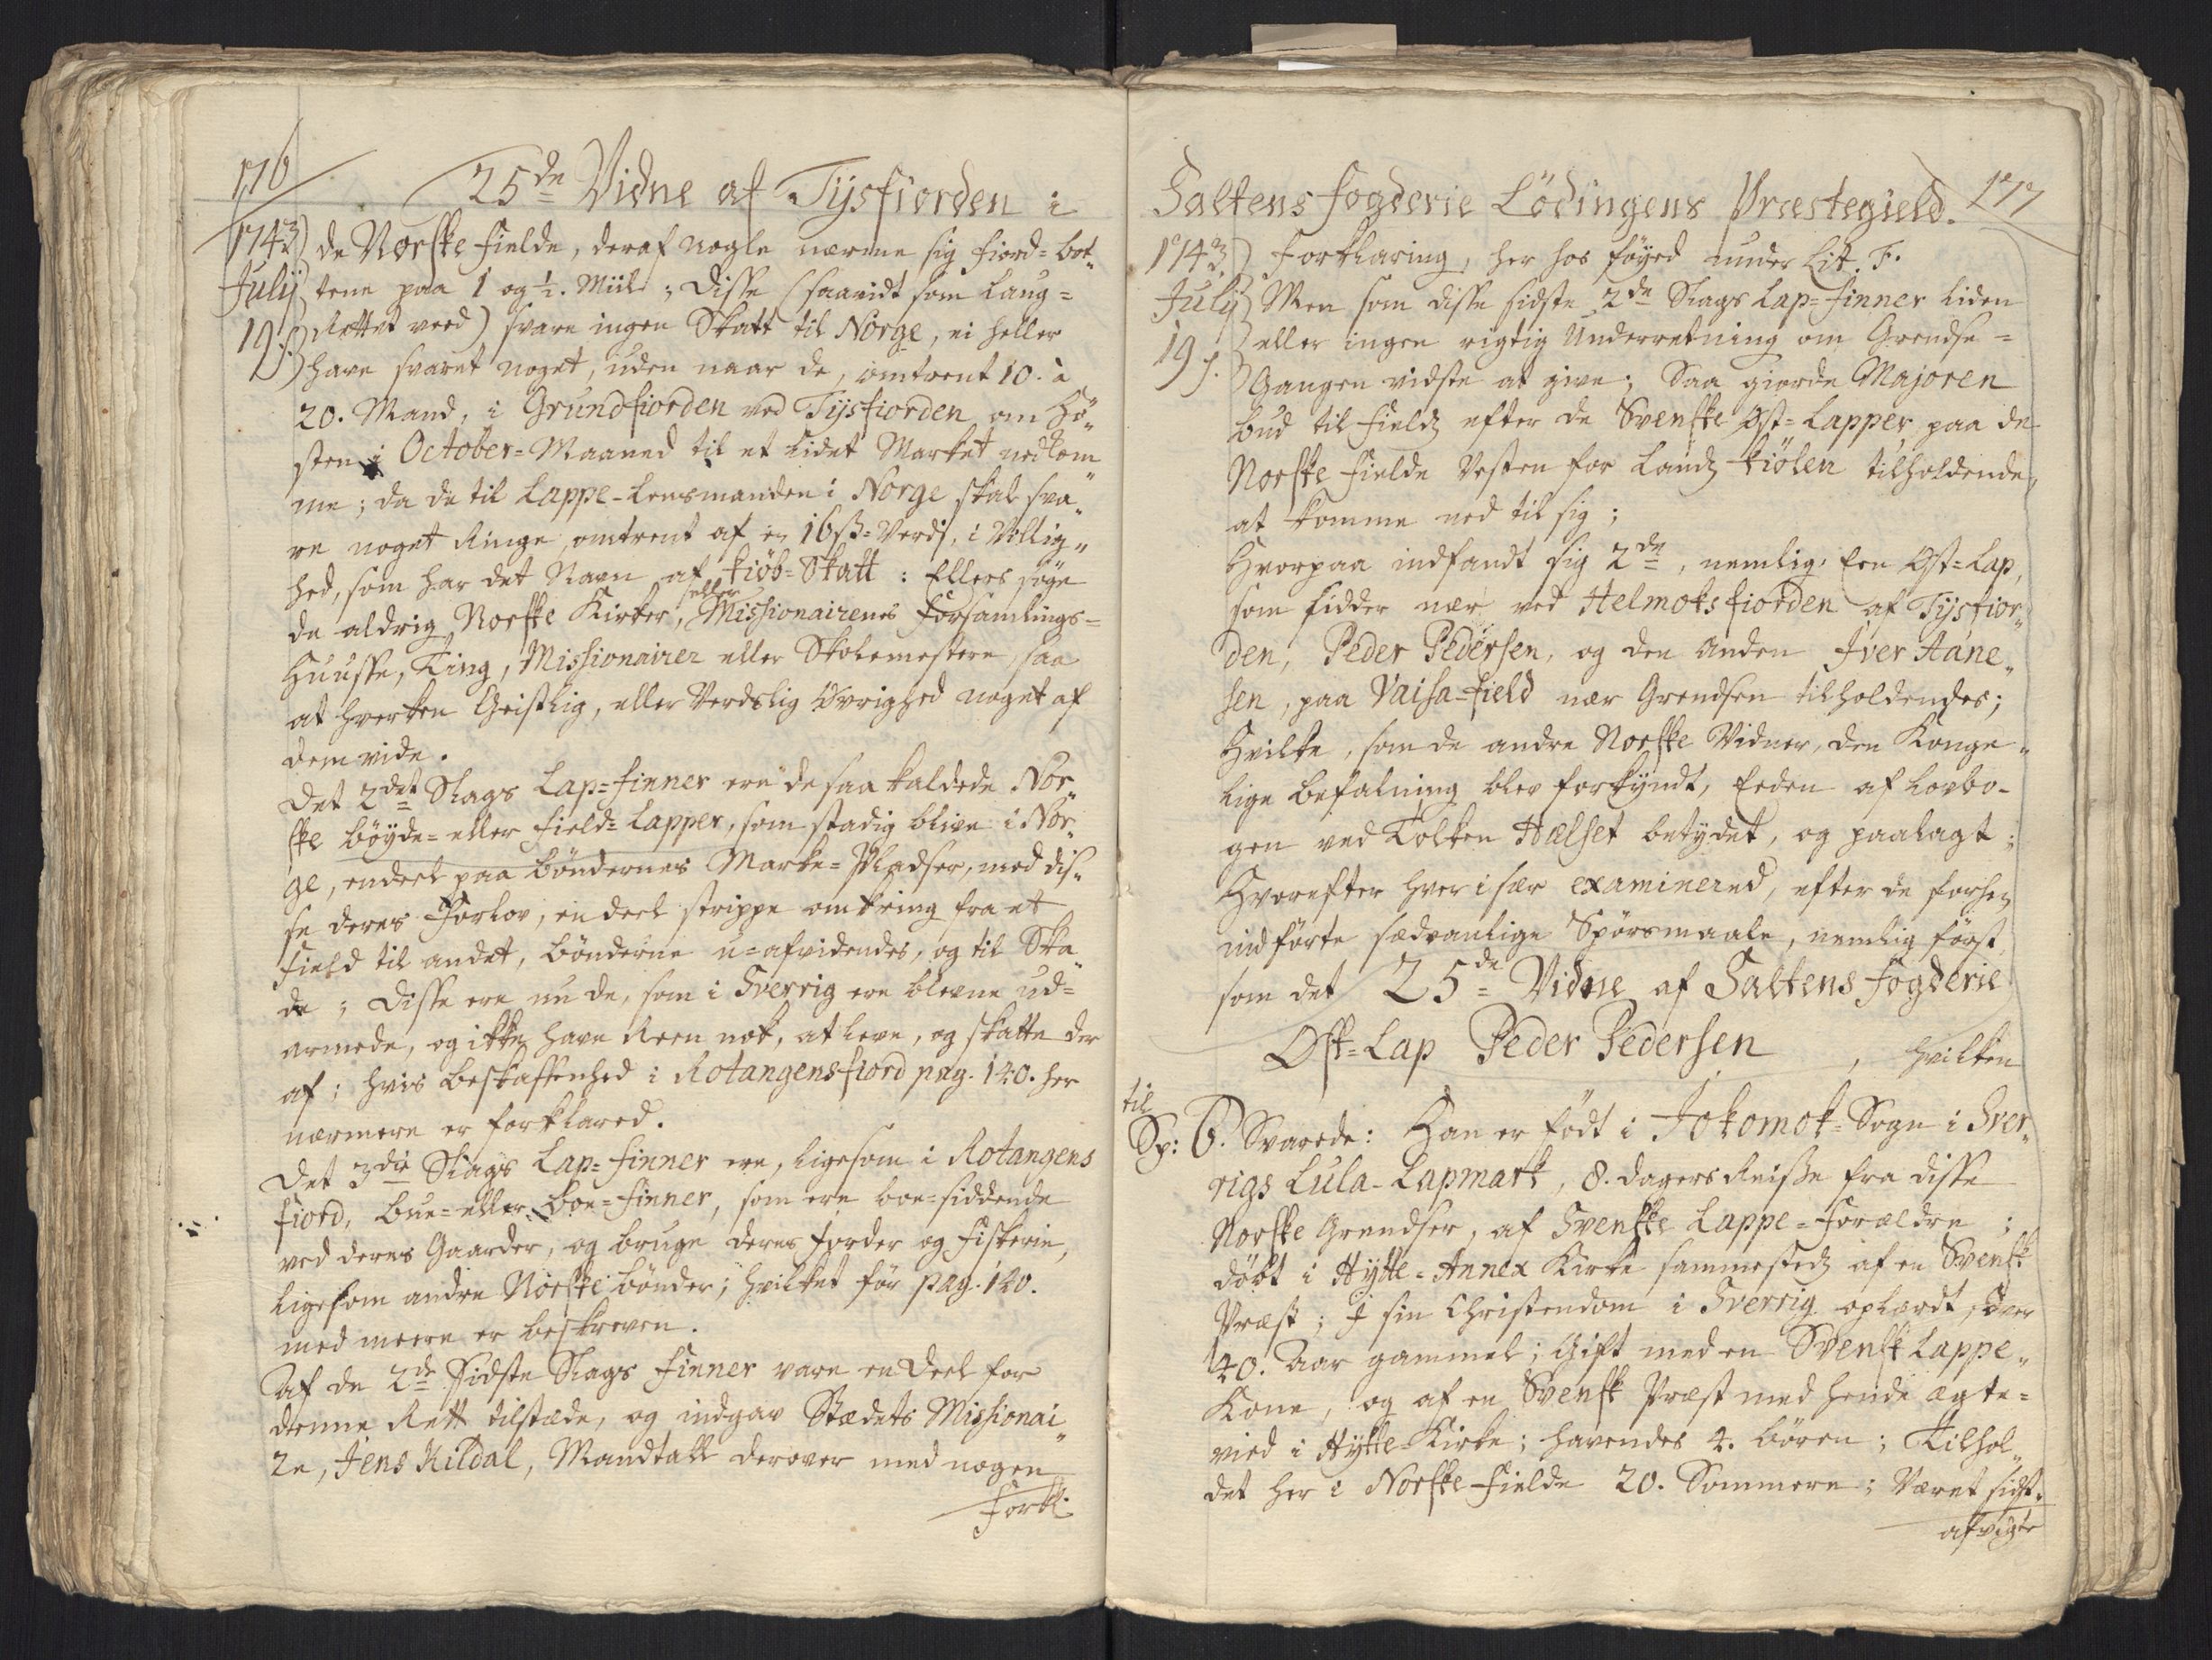 176
25de Vidne af Tysfiorden i
1743
July
19.
de Norske Fielde, deraf nogle nærme sig Fiord-bot„
tene paa 1 og ½. Miil; Disse (saavidt som Laug=
Rettet veed) svare ingen Skatt til Norge, ei heller
have svaret noget, uden naar de, omtrent 10. à
20. Mand, i Grundfiorden ved Tysfiorden om Hö„
sten i October-Maaned til et lidet Market nedkom
me; da de til Lappe-Lensmanden i Norge skal sva„
re noget Ringe, omtrent af en 16ß-Verdi, i Villig„
hed, som har det Navn af Kiöb-Skatt: Ellers söge
de aldrig Norske Kirker, eller Missionairenes Forsamlings=
Huusse, Ting, Missionairer eller Skolemestere, saa
at hverken Geistlig, eller Verdslig Övrighed noget af
dem vide.
Det 2det Slags Lap-Finner ere de saa kaldede Nor„
ske Böyde- eller Field-Lapper, som stadig blive i Nor„
ge, endeel paa Böndernes Marke-Pladser, med dis„
se deres Forlov, en deel strippe omkring fra et
Field til andet, Bönderne u-afvidendes, og til Ska„
de; Disse ere nu de, som i Sverrig ere blevne ud=
armede, og ikke have Reen nok, at leve, og skatte der
af; hvis Beskaffenhed i Rotangensfiord pag. 120. her
nærmere er forklared.
Det 3die Slags Lap-Finner ere, ligesom i Rotangens
fiord, Bue- eller Boe-Finner, som ere boe-siddende
ved deres Gaarder, og bruge deres Jorder og Fiskerie,
ligesom andre Norske Bönder; hvilket för pag. 120.
med meere er beskreven.
Af de 2de Sidste Slags Finner vare en deel for
denne Rett tilstæde, og indgav Stædets Missionai„
re, Jens Kildal, Mandtall derover med nogen
Forkl:
Saltens Fogderie Lödingens Præstegield.
177
1743
July
19.
Forklaring, her hos föyed under Lit. F.
Men som disse sidste 2de Slags Lap-Finner liden
eller ingen rigtig Underretning om Grendse=
Gangen vidste at give; Saa giorde Majoren
bud til Fields efter de Svenske Öst-Lapper, paa de
Norske Fielde Vesten for Lands Kiölen tilholdende,
at komme ned til sig;
Hvorpaa indfandt sig 2de, nemlig: Een Öst-Lap,
som sidder nær ved Helmoksfiorden af Tysfior„
den, Peder Pedersen, og den anden Iver Aane„
sen, paa Vaisa-Field nær Grendsen tilholdendes;
Hvilke, som de andre Norske Vidner, den Konge„
lige Befalning blev forkyndt, Eeden af Lovbo-
gen ved Tolken Hælset betydet, og paalagt;
Hvorefter hver i sær examinered, efter de forhen
indförte sædvanlige Spörsmaale, nemlig först
som det 25de Vidne af Saltens Fogderie
Öst-Lap Peder Pedersen, hvilken
til
Sp: 6. Svarede: Han er födt i Jokomok-Sogn i Sver„
rigs Lula-Lapmark, 8. dagers Reisse fra disse
Norske Grendser, af Svenske Lappe-Forældre;
döbt i Hytte-Annex Kirke sammesteds af en Svensk
Præst; I sin Christendom i Sverrig oplærdt, over
40. Aar gammel; Gift med en Svensk Lappe„
Kone, og af en Svensk Præst med hende ægte=
vied i Hytte-Kirke; havendes 4. Börn; Tilhol„
det her i Norske Fielde 20. Sommere; Været sidst„
afvigte